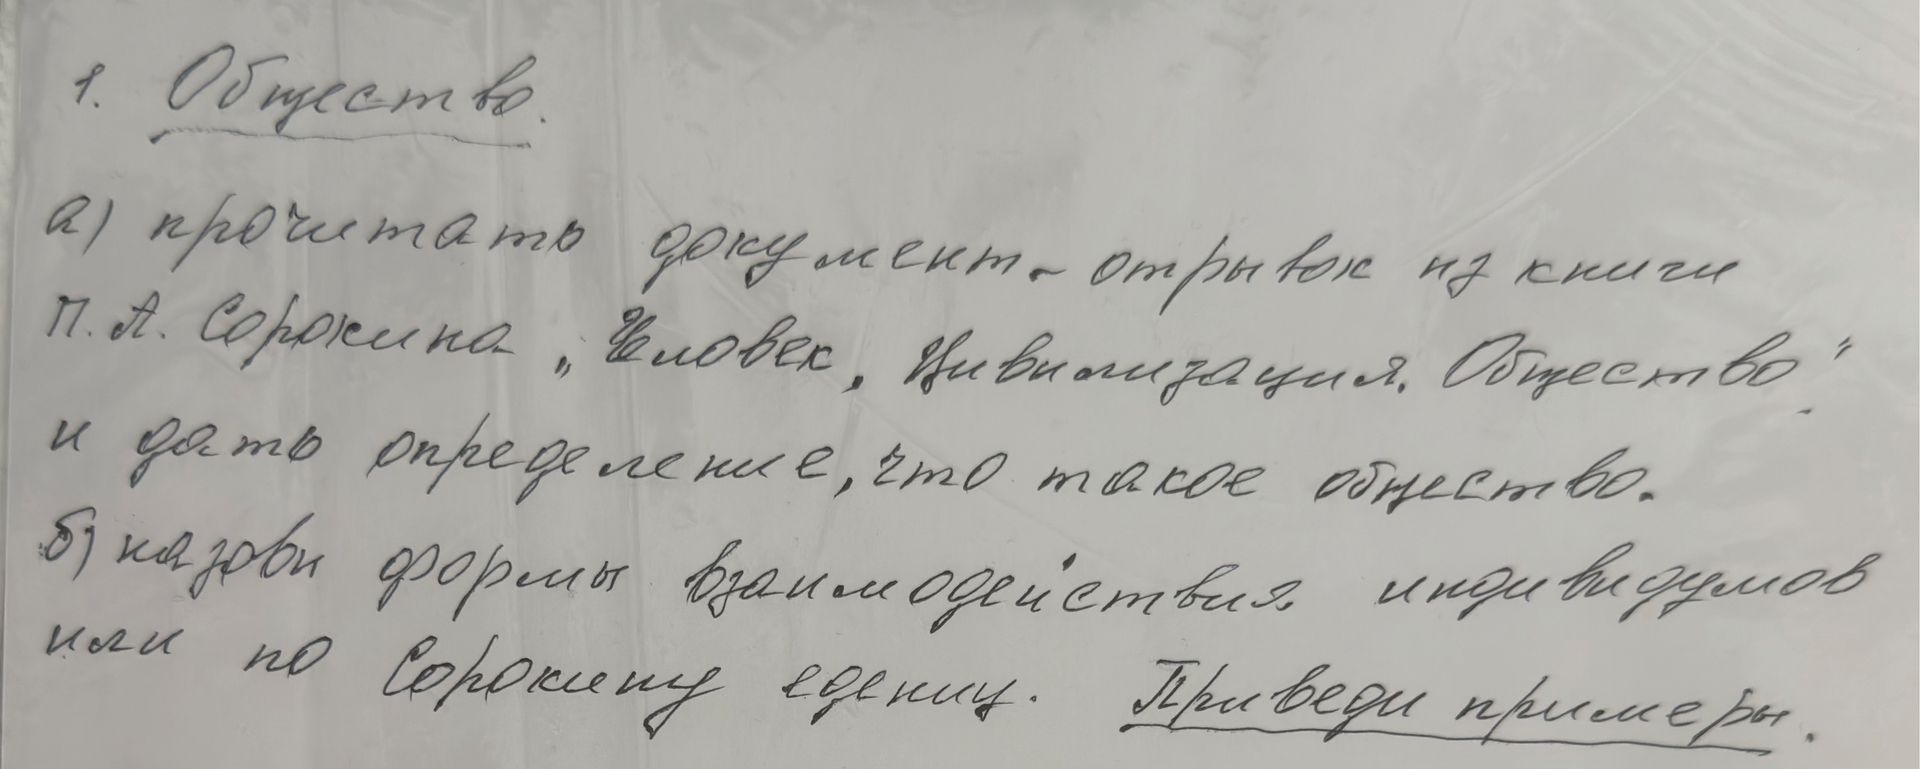 1. Общество.
а) прочитать документ - отрывок из книги
П. А. Сорокина „Человек. Цивилизация. Общество".
и дать определение, что такое общество.
б) назови формы взаимодействия индивидумов
или по Сорокину едениц. Приведи примеры.